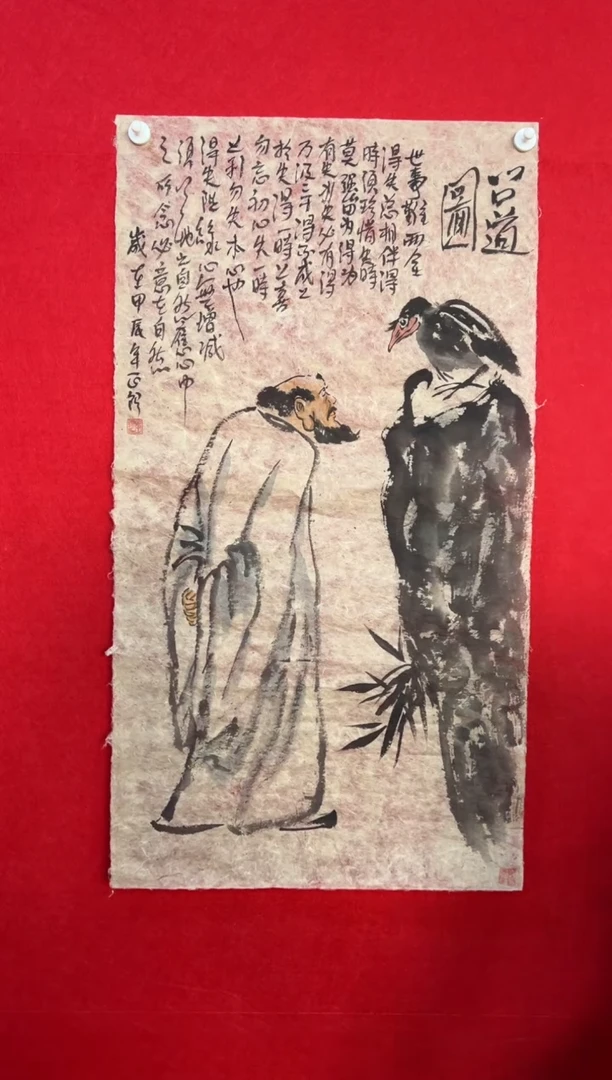 道
圖
世事難兩全
得失總相伴得
時須珍惜失時
莫強留為得
有失亦失必有得
乃得之
於失得一時之喜
勿忘初心失一時
之利勿失本心也
得失隨緣心無增減
須之自然心中
之所念必意在自然
歲在甲辰年